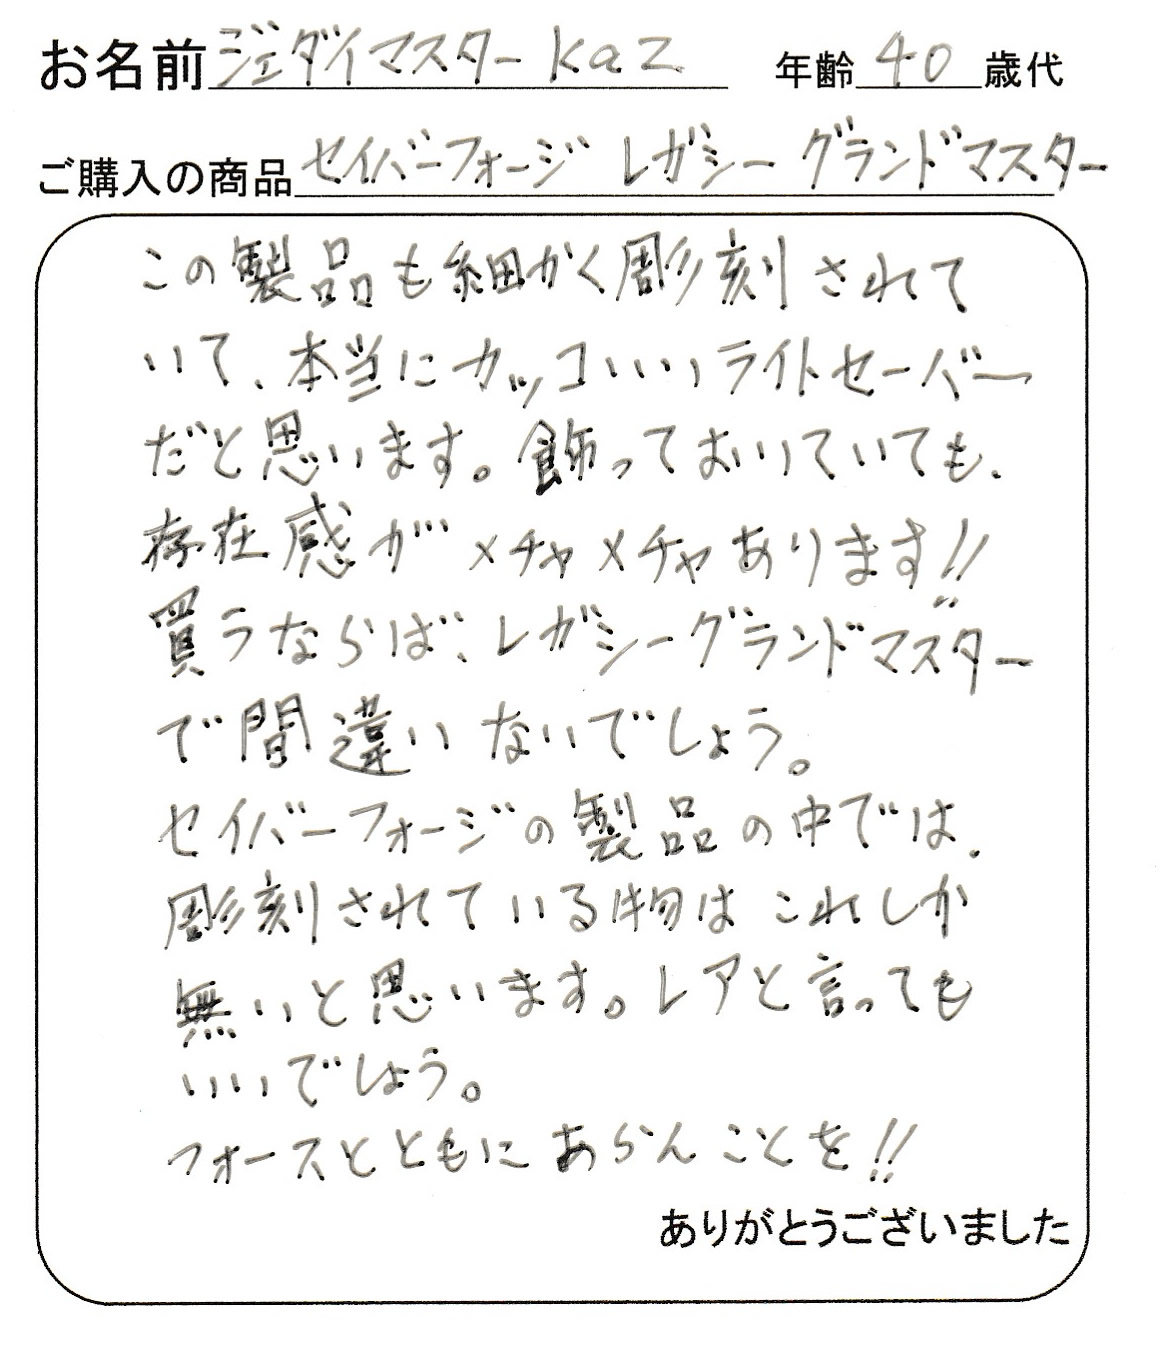 お名前 ジェダイマスター kaz 年齢 40 歳代
ご購入の商品 セイバーフォージ レガシー グランドマスター
この製品も細かく彫刻されて
いて、本当にカッコいいライトセーバー
だと思います。飾っておいていても、
存在感がメチャメチャあります!!
買うならば、レガシーグランドマスター
で間違いないでしょう。
セイバーフォージの製品の中では、
彫刻されている物はこれしか
無いと思います。レアと言っても
いいでしょう。
フォースとともにあらんことを!!
ありがとうございました